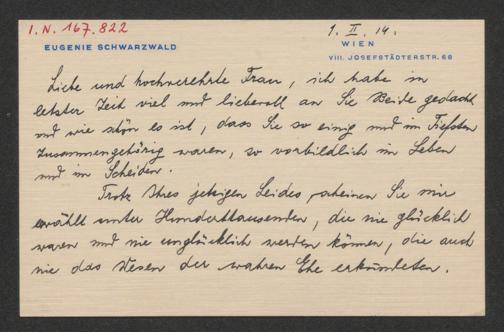 I.N. 167.822
1. II. 14.
EUGENIE SCHWARZWALD
WIEN
VIII. JOSEFSTÄDTERSTR. 68
Liebe und hochverehrte Frau, ich habe in
letzter Zeit viel und liebevoll an Sie Beide gedacht
und wie schön es ist, dass Sie so einig und im Tiefsten
zusammengehörig waren, so vorbildlich im Leben
und im Scheiden.
Trotz Ihres jetzigen Leides, scheinen Sie mir
erwählt unter Hunderttausenden, die nie glücklich
waren und nie unglücklich werden können, die auch
nie das Wesen der wahren Ehe erkundeten.